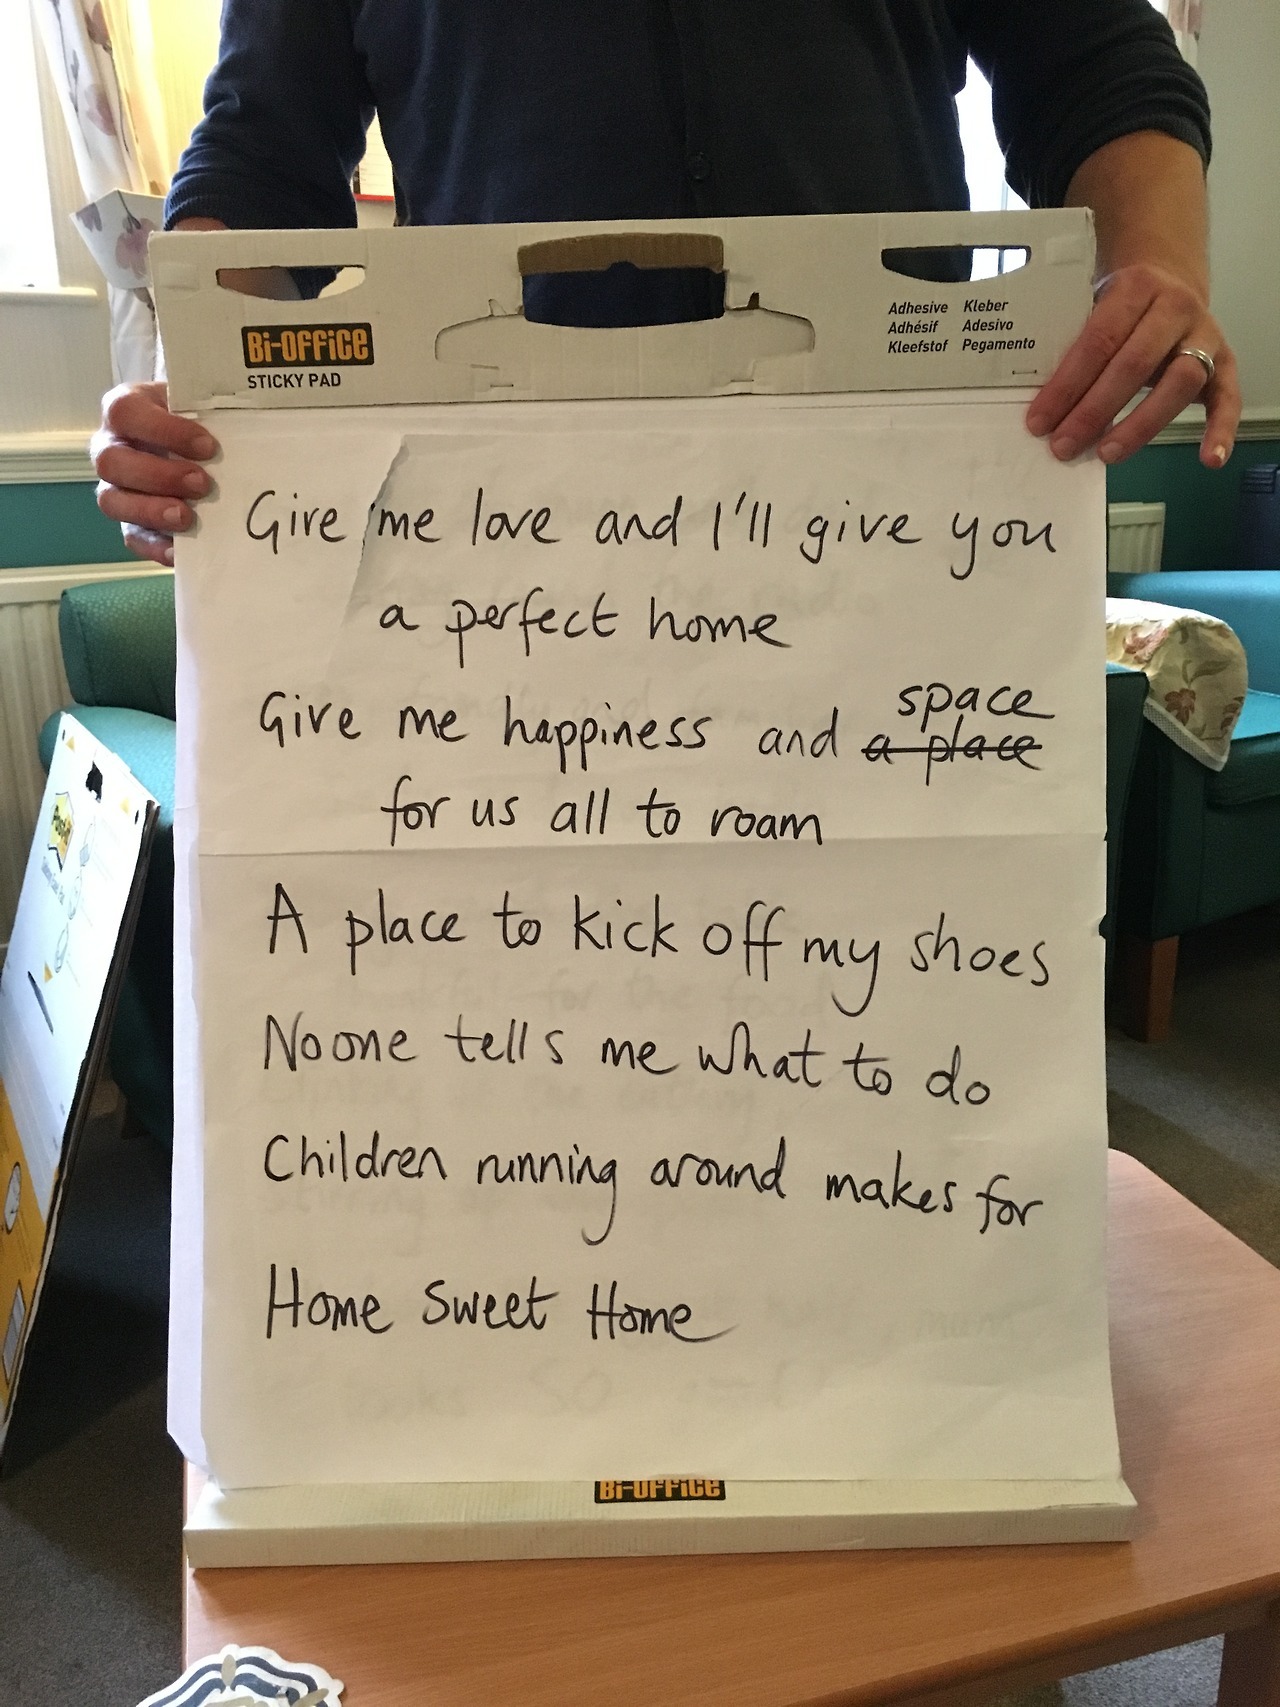 Bi-OFFiCE
STICKY PAD
Adhesive Kleber
Adhésif Adesivo
Kleefstof Pegamento
Give me love and I'll give you
a perfect home
space
Give me happiness and a place
for us all to roam
A place to kick off my shoes
Noone tells me what to do
Children running around makes for
Home Sweet Home
Bi-OFFiCE
Post-it